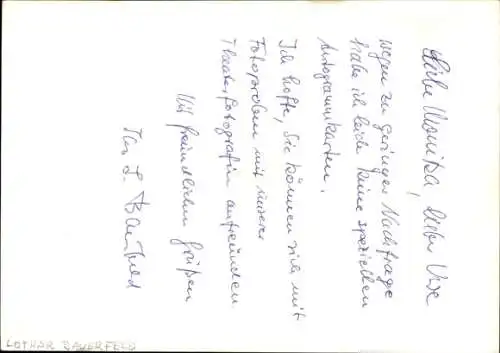 Liebe Monika, lieber Uwe!
wegen zu geringer Nachfrage
habe ich leider keine speziellen
Autogrammkarten.
Ich hoffe, Sie können sich mit
Fotoproben mit unserer
Theaterfotografin anfreunden
Mit freundlichen Grüßen
Ihr L. Bauerfeld
LOTHAR BAUERFELD